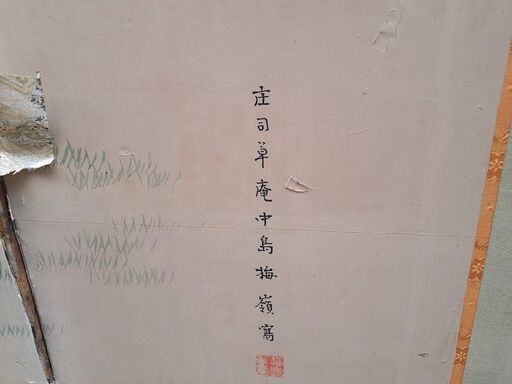 庄司草庵中島梅嶺寫